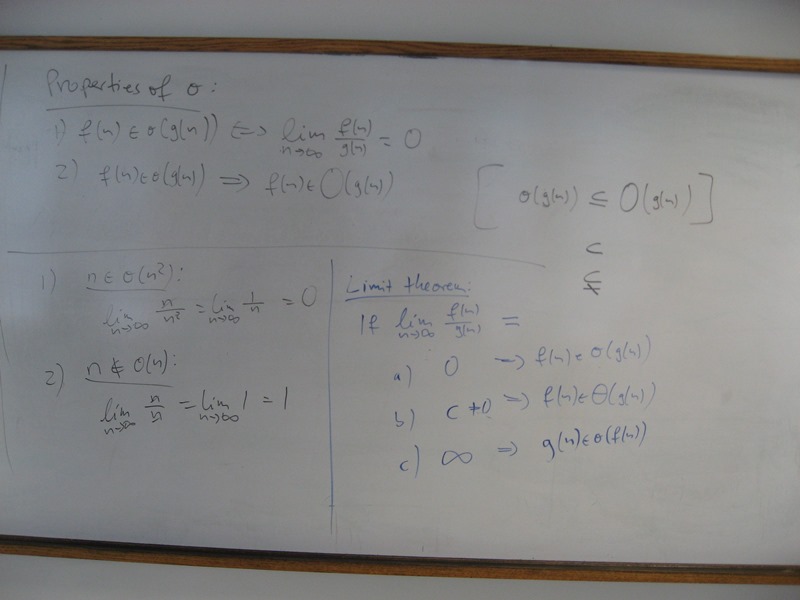 Properties of o:
1) f(n) ∈ o(g(n)) ⟺ lim n→∞ f(n)/g(n) = 0
2) f(n) ∈ o(g(n)) ⟹ f(n) ∈ O(g(n))
[ o(g(n)) ⊆ O(g(n)) ]
⊂
⊊
1) n ∈ o(n²):
lim n→∞ n/n² = lim n→∞ 1/n = 0
2) n ∉ o(n):
lim n→∞ n/n = lim n→∞ 1 = 1
Limit theorem:
If lim n→∞ f(n)/g(n) =
a) 0 ⟹ f(n) ∈ o(g(n))
b) c ≠ 0 ⟹ f(n) ∈ Θ(g(n))
c) ∞ ⟹ g(n) ∈ o(f(n))